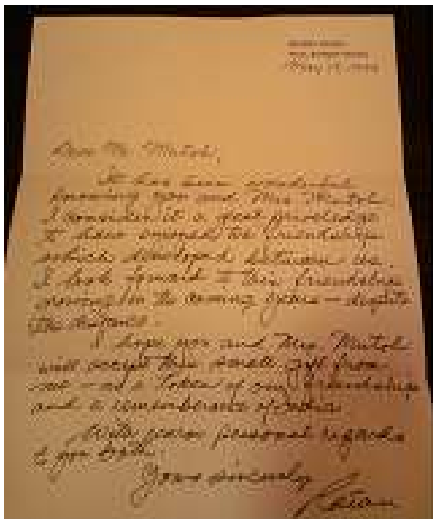 Dear Mr. Mutoh,
It has been wonderful
knowing you and Mrs. Mutoh.
I consider it a great priviledge
to have enjoyed the friendship
which developed between us.
I look forward to this friendship
growing in the coming years — despite
the distance.
I hope you and Mrs. Mutoh
will accept this small gift from
me — as a token of our friendship
and a remembrance of
With warm personal regards
to you both.
Yours sincerely
Ratan